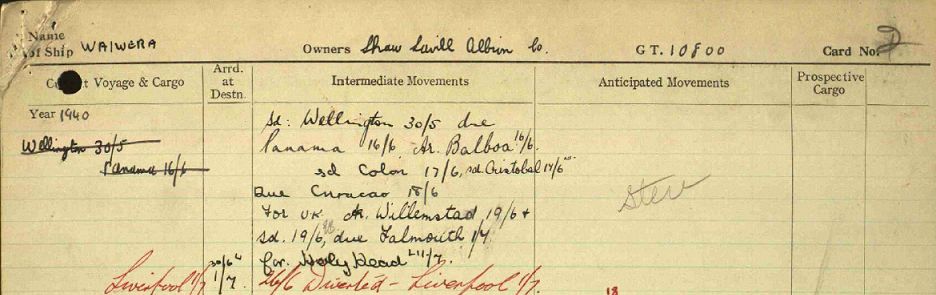 Name of Ship WAIWERA Owners Shaw Savill Albion Co. G T. 10800 Card No. 2
Voyage & Cargo Arrd. at Destn. Intermediate Movements Anticipated Movements Prospective Cargo
Year 1940
sd: Wellington 30/5 due
Wellington 30/5
Panama 16/6 Ar. Balboa 16/6.
Panama 16/6
sd Colon 17/6, sd. Cristobal 17/6
Due Curacao 18/6
Stew
For UK Ar. Willemstad 19/6 +
sd. 19/6, due Falmouth 1/7
for. Holy Head 1/7.
Liverpool 1/7 30/6 1/7 26/6 Diverted - Liverpool 1/7.
18